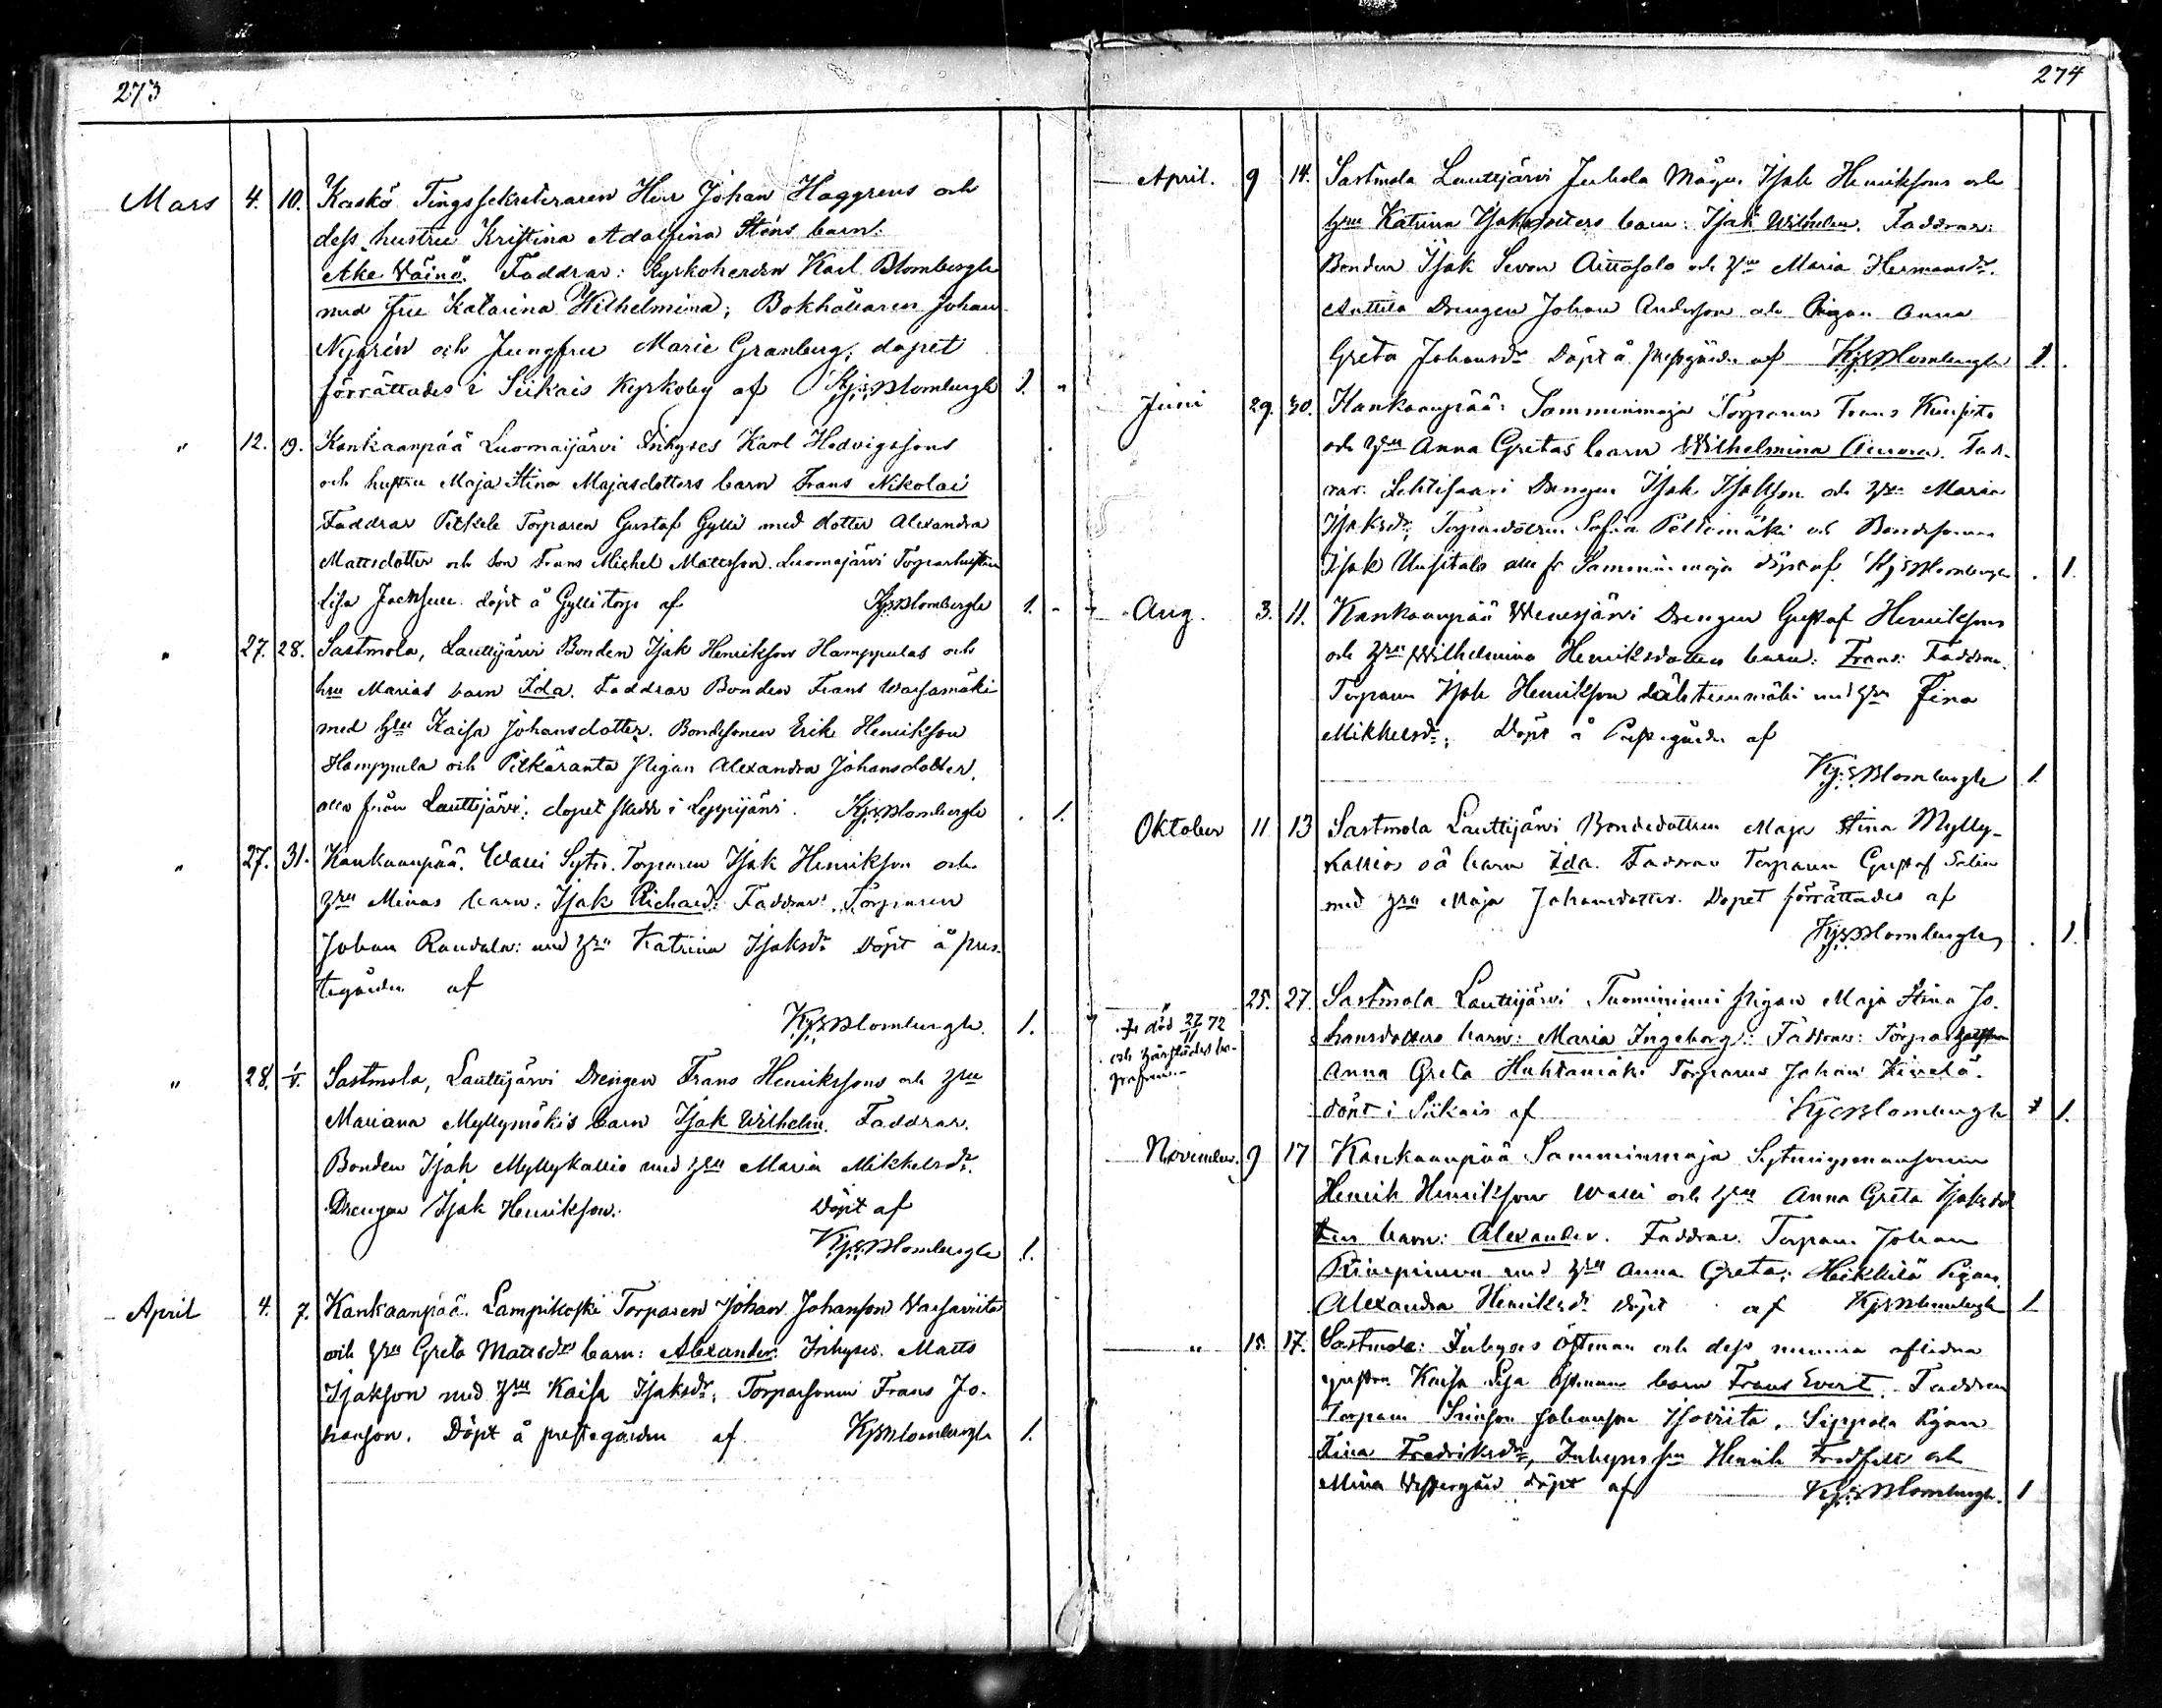 273
Mars 4. 10. Kaskö Tingssekreteraren Herr Johan Haggrens och
dess hustru Kristina Adolfina Sténs barn:
Ake Wäinö. Faddrar: Kyrkoherden Karl Blombergh
med fru Katarina Wilhelmina; Bokhållaren Johan
Nygrén och Jungfru Marie Granberg; dopet
förrättades i Siikais Kyrkoby af Kjs: Blombergh 1. "
" 12. 19. Kankaanpää Luomaijärvi Inhyses Karl Hedvigssons
och hustru Maja Stina Majasdotters barn Frans Nikolai
Faddrar Pitkele Torparen Gustaf Gylli med dotter Alexandra
Mattsdotter och son Frans Michel Mattsson. Luomajärvi Torparhustrun
Lisa döpt å Gylli torp af Kjs: Blombergh 1. "
" 27. 28. Sastmola, Lauttijärvi Bonden Isak Henriksson Hamppulas och
hru Marias barn Ida. Faddrar Bonden Frans Warsamäki
med hru Kaisa Johansdotter. Bondesonen Erik Henriksson
Hamppula och Pitkäranta Pigan Alexandra Johansdotter,
alla från Lauttijärvi; dopet skedde i Leppijärvi. Kjs: Blombergh . 1.
" 27. 31. Kankaanpää. Walli Sytn. Torparen Isak Henriksson och
hru Minas barn: Isak Richard: Faddrar: Torparen
Johan Raudala: med hru Katrina Isaksdr Döpt å pres-
tegården af
Kjs: Blombergh. 1.
" 28. Sastmola, Lauttijärvi Drengen Frans Henrikssons och hru
Mariana Myllymäkis barn Isak Wilhelm. Faddrar.
Bonden Isak Myllykallio med hru Maria Mikkelsdr.
Drengen Isak Henriksson. Döpt af
Kjs: Blombergh 1.
April 4. 7. Kankaanpää. Lampikoski Torparen Johan Johansson Warsaviita
och hru Greta Mattsdrs barn: Alexander: Inhyses. Matts
Isaksson med hru Kaisa Isaksdr; Torparsonen Frans Jo-
hansson. Döpt å prestegården af Kjs Blombergh 1.
274
April. 9 14. Sastmola Lauttijärvi Juhola Mågen Isak Henrikssons och
hru Katrina Isaksdotters barn: Isak Wilhelm. Faddrar:
Bonden Isak Sevon Aittosalo och hru Maria Hermansdr.
Anttila Drengen Johan Andersson och Pigan Anna
Greta Johansdr Döpt å Prestgården af Kjs Blombergh 1.
Juni 29. 30. Hankaanpää: Samminmaja Torparen Frans
och hru Anna Gretas barn Wilhelmina Aurora. Fad-
rar: Lehtisaari Drengen Isak Isaksson och hru Maria
Isaksdr; Torparedottren Sofia Peltomäki och Bondesonen
Isak Uusitalo alla fr Samminmaja döpt af Kjs Blombergh . 1.
Aug. 3. 11. Kankaanpää Wenesjärvi Drengen Gustaf Henrikssons
och hru Wilhelmina Henriksdotters barn: Frans: Faddrar.
Torparen Isak Henriksson med hru Fina
Mikkelsdr; Döpt å Prestgården af
Kjs: Blombergh 1.
Oktober 11 13 Sastmola Lauttijärvi Bondedottren Maja Stina Mylly-
kallios oä barn Ida. Faddrar Torparen Gustaf Salin
med hru Maja Johansdotter. Dopet förrättades af
Kjs Blombergh . 1.
" 25. 27. Sastmola Lauttijärvi Tuominiemi Pigan Maja Stina Jo-
hansdotters barn: Maria Ingeborg: Faddrar: Torpar hustrun
Anna Greta Huhtamäki Torparen Johan Kivelä.
döpt i Siikais af Kjs Blombergh † 1.
† död 27/11 72
och härstädes be-
grafven
November. 9 17 Kankaanpää Samminmaja Sytningsmansonen
Henrik Henriksson Walli och hru Anna Greta Isaksdot
ters barn: Alexander. Faddrar. Torparen Johan
med hru Anna Greta; Heikkilä Pigan
Alexandra Henriksdr döpt af Kjs Blombergh 1
" 15. 17. Sastmola: Inhyses Östman och dess numera aflidna
hustru Kaisa Lisa Östmans barn Frans Evert. Faddrar
Torparen Johansson Isoviita, Sippola Pigan
Fina Fredriksdr, Inhyses Henrik och
Mina Westergård döpt af Kjs: Blombergh. 1